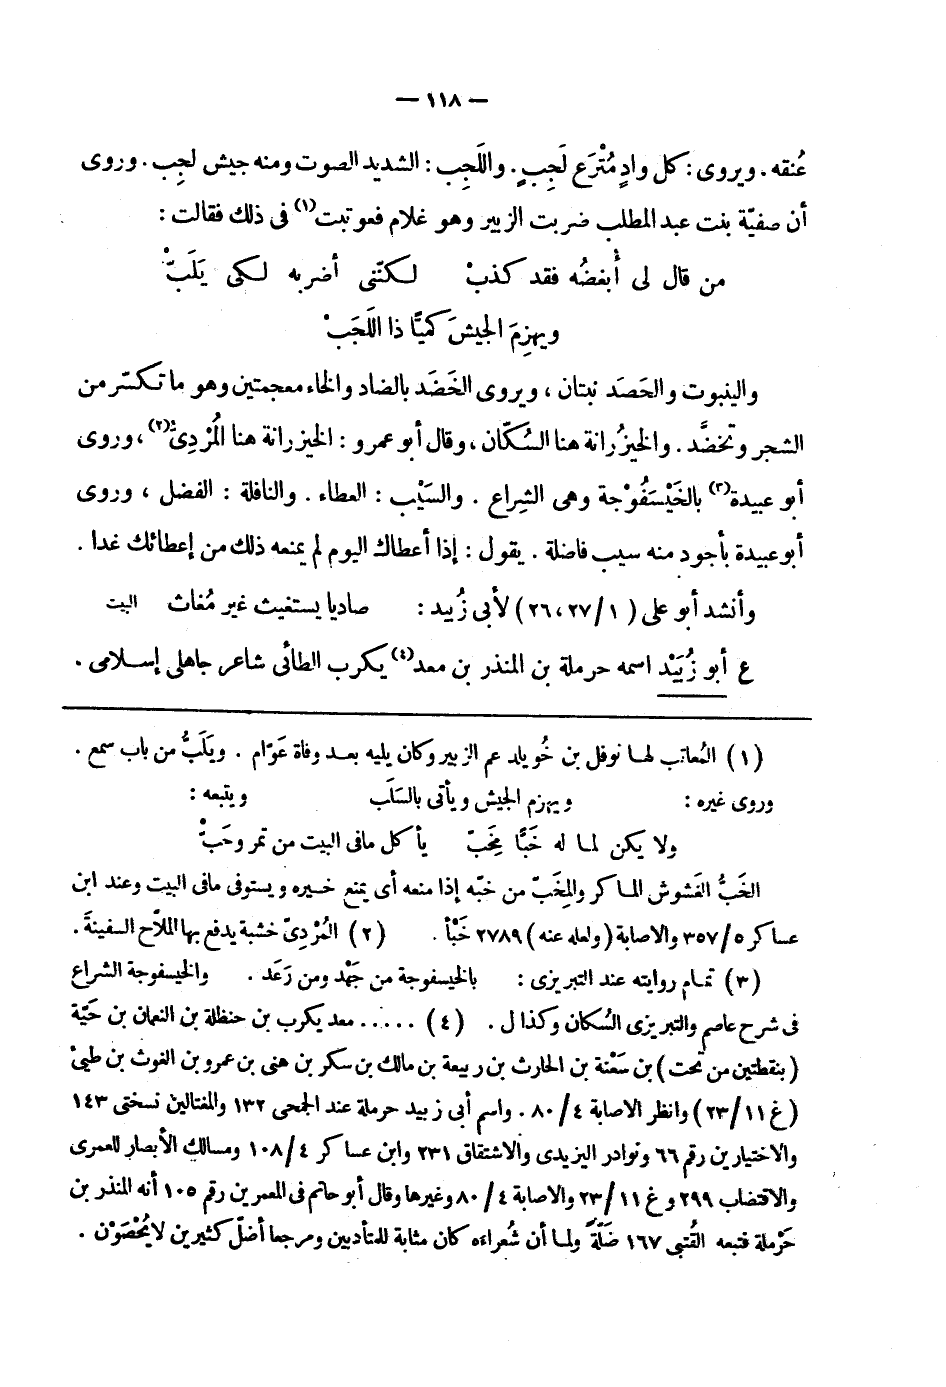 — ١١٨ —
عُنقه . ويروى : كل وادٍ مُتْرَع لَجِبٍ . واللَجِب : الشديد الصوت ومنه جيش لجِب . وروى
أن صفيّة بنت عبد المطلب ضربت الزبير وهو غلام فعوتبت(١) فى ذلك فقالت :
من قال لى أُبغضُه فقد كذبْ لكنّنى أضربه لكى يَلَبّْ
ويهزِمَ الجيشَ كميًّا ذا اللَجَبْ
والينبوت والحَصَد نبتان ، ويروى الخَضَد بالضاد والخاء معجمتين وهو ما تكسّر من
الشجر وتخضَّد . والخيزُرانة هنا السُكّان ، وقال أبو عمرو : الخيزرانة هنا المُرْدِىّ(٢) ، وروى
أبو عبيدة(٣) بالخَيْسَفُوْجة وهى الشِراع . والسَيْب : العطاء . والنافلة : الفضل ، وروى
أبو عبيدة بأجود منه سيب فاضلة . يقول : إذا أعطاك اليوم لم يمنعه ذلك من إعطائك غدا .
وأنشد أبو على ( ١/ ٢٧ ، ٢٦ ) لأبى زُبيد : صاديا يستغيث غير مُغاث البيت
ع أبو زُبَيْد اسمه حرملة بن المنذر بن معد(٤) يكرب الطائى شاعر جاهلى إسلامى .
(١) المُعاتب لها نوفل بن خُويلد عم الزبير وكان يليه بعد وفاة عَوّام . ويَلَبُّ من باب سمع .
وروى غيره : ويهزم الجيش ويأتى بالسَلَب ويتبعه :
ولا يكن لما له خَبًّا مِخَبّ يأكل مافى البيت من تمر وحَبّْ
الخَبُّ الغَشوش الماكر والمِخَبّ من خبّه إذا منعه أى يمنع خيره ويستوفى مافى البيت وعند ابن
عساكر ٥/٣٥٧ والاصابة (ولعله عنه) ٢٧٨٩ خَبْأ . (٢) المُرْدِىّ خشبة يدفع بها الملّاح السفينةَ .
(٣) تمام روايته عند التبريزى : بالخيسفوجة من جَهْد ومن رَعَد . والخيسفوجة الشراع
فى شرح عاصم والتبريزى السُكان وكذا ل . (٤) ..... معد يكرب بن حنظلة بن النعمان بن حَيّة
(بنقطتين من تحت) بن سَعْنة بن الحارث بن ربيعة بن مالك بن سكر بن هنى بن عمرو بن الغوث بن طيئ
(غ ١١/٢٣) وانظر الاصابة ٤/٨٠ . واسم أبى زبيد حرملة عند الجمحى ١٣٢ والمغتالين نسختى ١٤٣
والاختيارين رقم ٦٦ ونوادر اليزيدى والاشتقاق ٢٣١ وابن عساكر ٤/١٠٨ ومسالك الأبصار للعمرى
والاقتضاب ٢٩٩ وغ ١١/٢٣ والاصابة ٤/٨٠ وغيرها وقال أبو حاتم فى المعمرين رقم ١٠٥ أنه المنذر بن
حَرْملة فتبعه القُتبى ١٦٧ ضَلّةً ولما أن شُعراءه كان مثابة للمتأدبين ومرجعا أضلّ كثيرين لايُحْصَوْن .